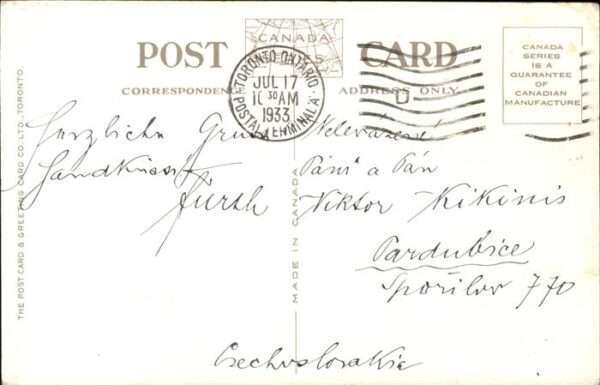 POST CARD
CANADA
CORRESPONDENCE
ADDRESS ONLY
TORONTO ONTARIO
JUL 17
10 30 AM
1933
POSTAL TERMINAL A
D
CANADA
SERIES
IS A
GUARANTEE
OF
CANADIAN
MANUFACTURE
THE POST CARD & GREETING CARD CO. LTD., TORONTO
MADE IN CANADA
Herzliche Gruss
Handküsse
Fürth
Velevážení
Páni a Pán
Viktor Kikinis
Pardubice
Spořilov 770
Czechoslovakia